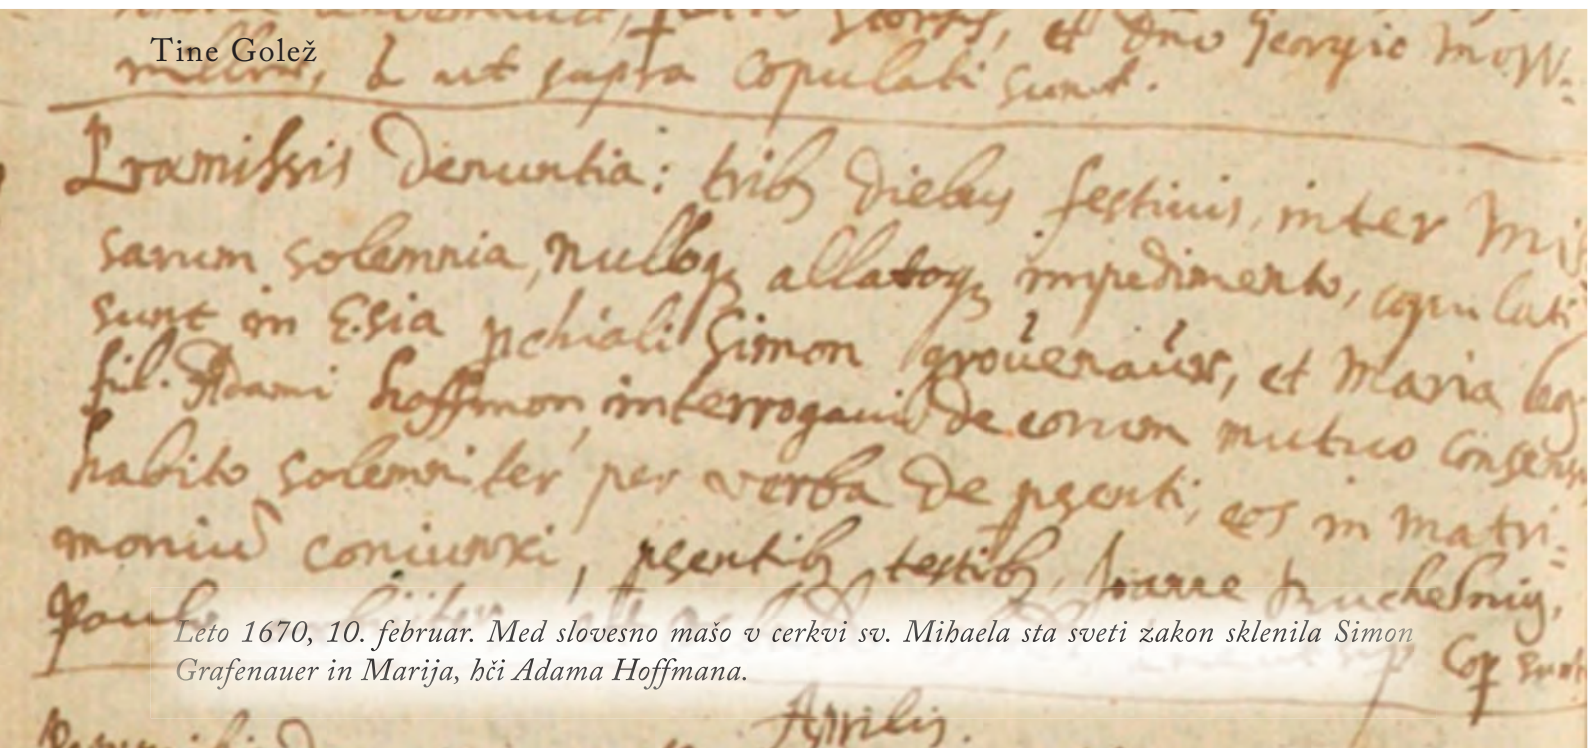 Tine Golež
et Dno Georgio
ut supra Copulati sunt.
Pramissis Denuntia: trib9 Diebus festivis, inter Mis
sarum solemnia, nulloq3 allatoq3 impedimento, copulati
sunt in Ecsia pchiali Simon groüenaür, et Maria leg
fil. Adami hoffmon, interrogavi De eorum mutuo Consens
habito solemniter per verba De psenti, eos in Matri-
moniu coniunxi, psentib9 testib9, Joanne
Paulo
Leto 1670, 10. februar. Med slovesno mašo v cerkvi sv. Mihaela sta sveti zakon sklenila Simon
Grafenauer in Marija, hči Adama Hoffmana.
Cop sunt
Aprilis.